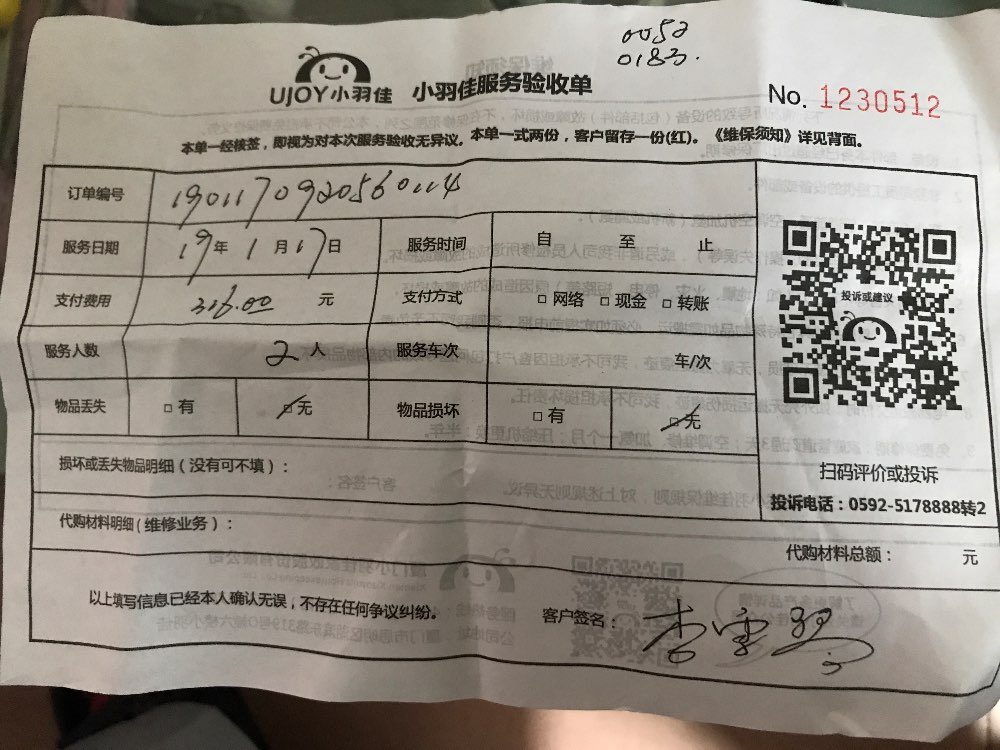 0052
0183.
UJOY小羽佳 小羽佳服务验收单
No. 1230512
本单一经核签，即视为对本次服务验收无异议。本单一式两份，客户留存一份(红)。《维保须知》详见背面。
订单编号 1901170920560114
服务日期 19年 1月17日 服务时间 自 至 止
支付费用 316.00 元 支付方式 □网络 □现金 □转账
服务人数 2人 服务车次 车/次
物品丢失 □有 ☑无 物品损坏 □有 ☑无
投诉或建议
扫码评价或投诉
投诉电话：0592-5178888转2
损坏或丢失物品明细（没有可不填）：
代购材料明细(维修业务)：
代购材料总额： 元
以上填写信息已经本人确认无误，不存在任何争议纠纷。 客户签名：